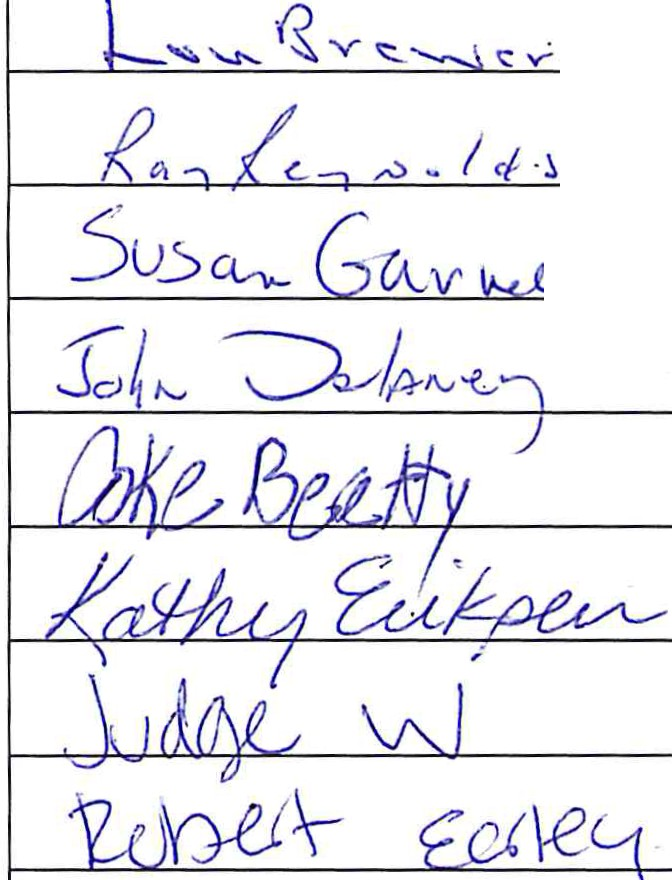 Lou Brewer
Ray Reynolds
Susan
John Delaney
Coke Beatty
Kathy Eriksen
Judge W
Robert Earley